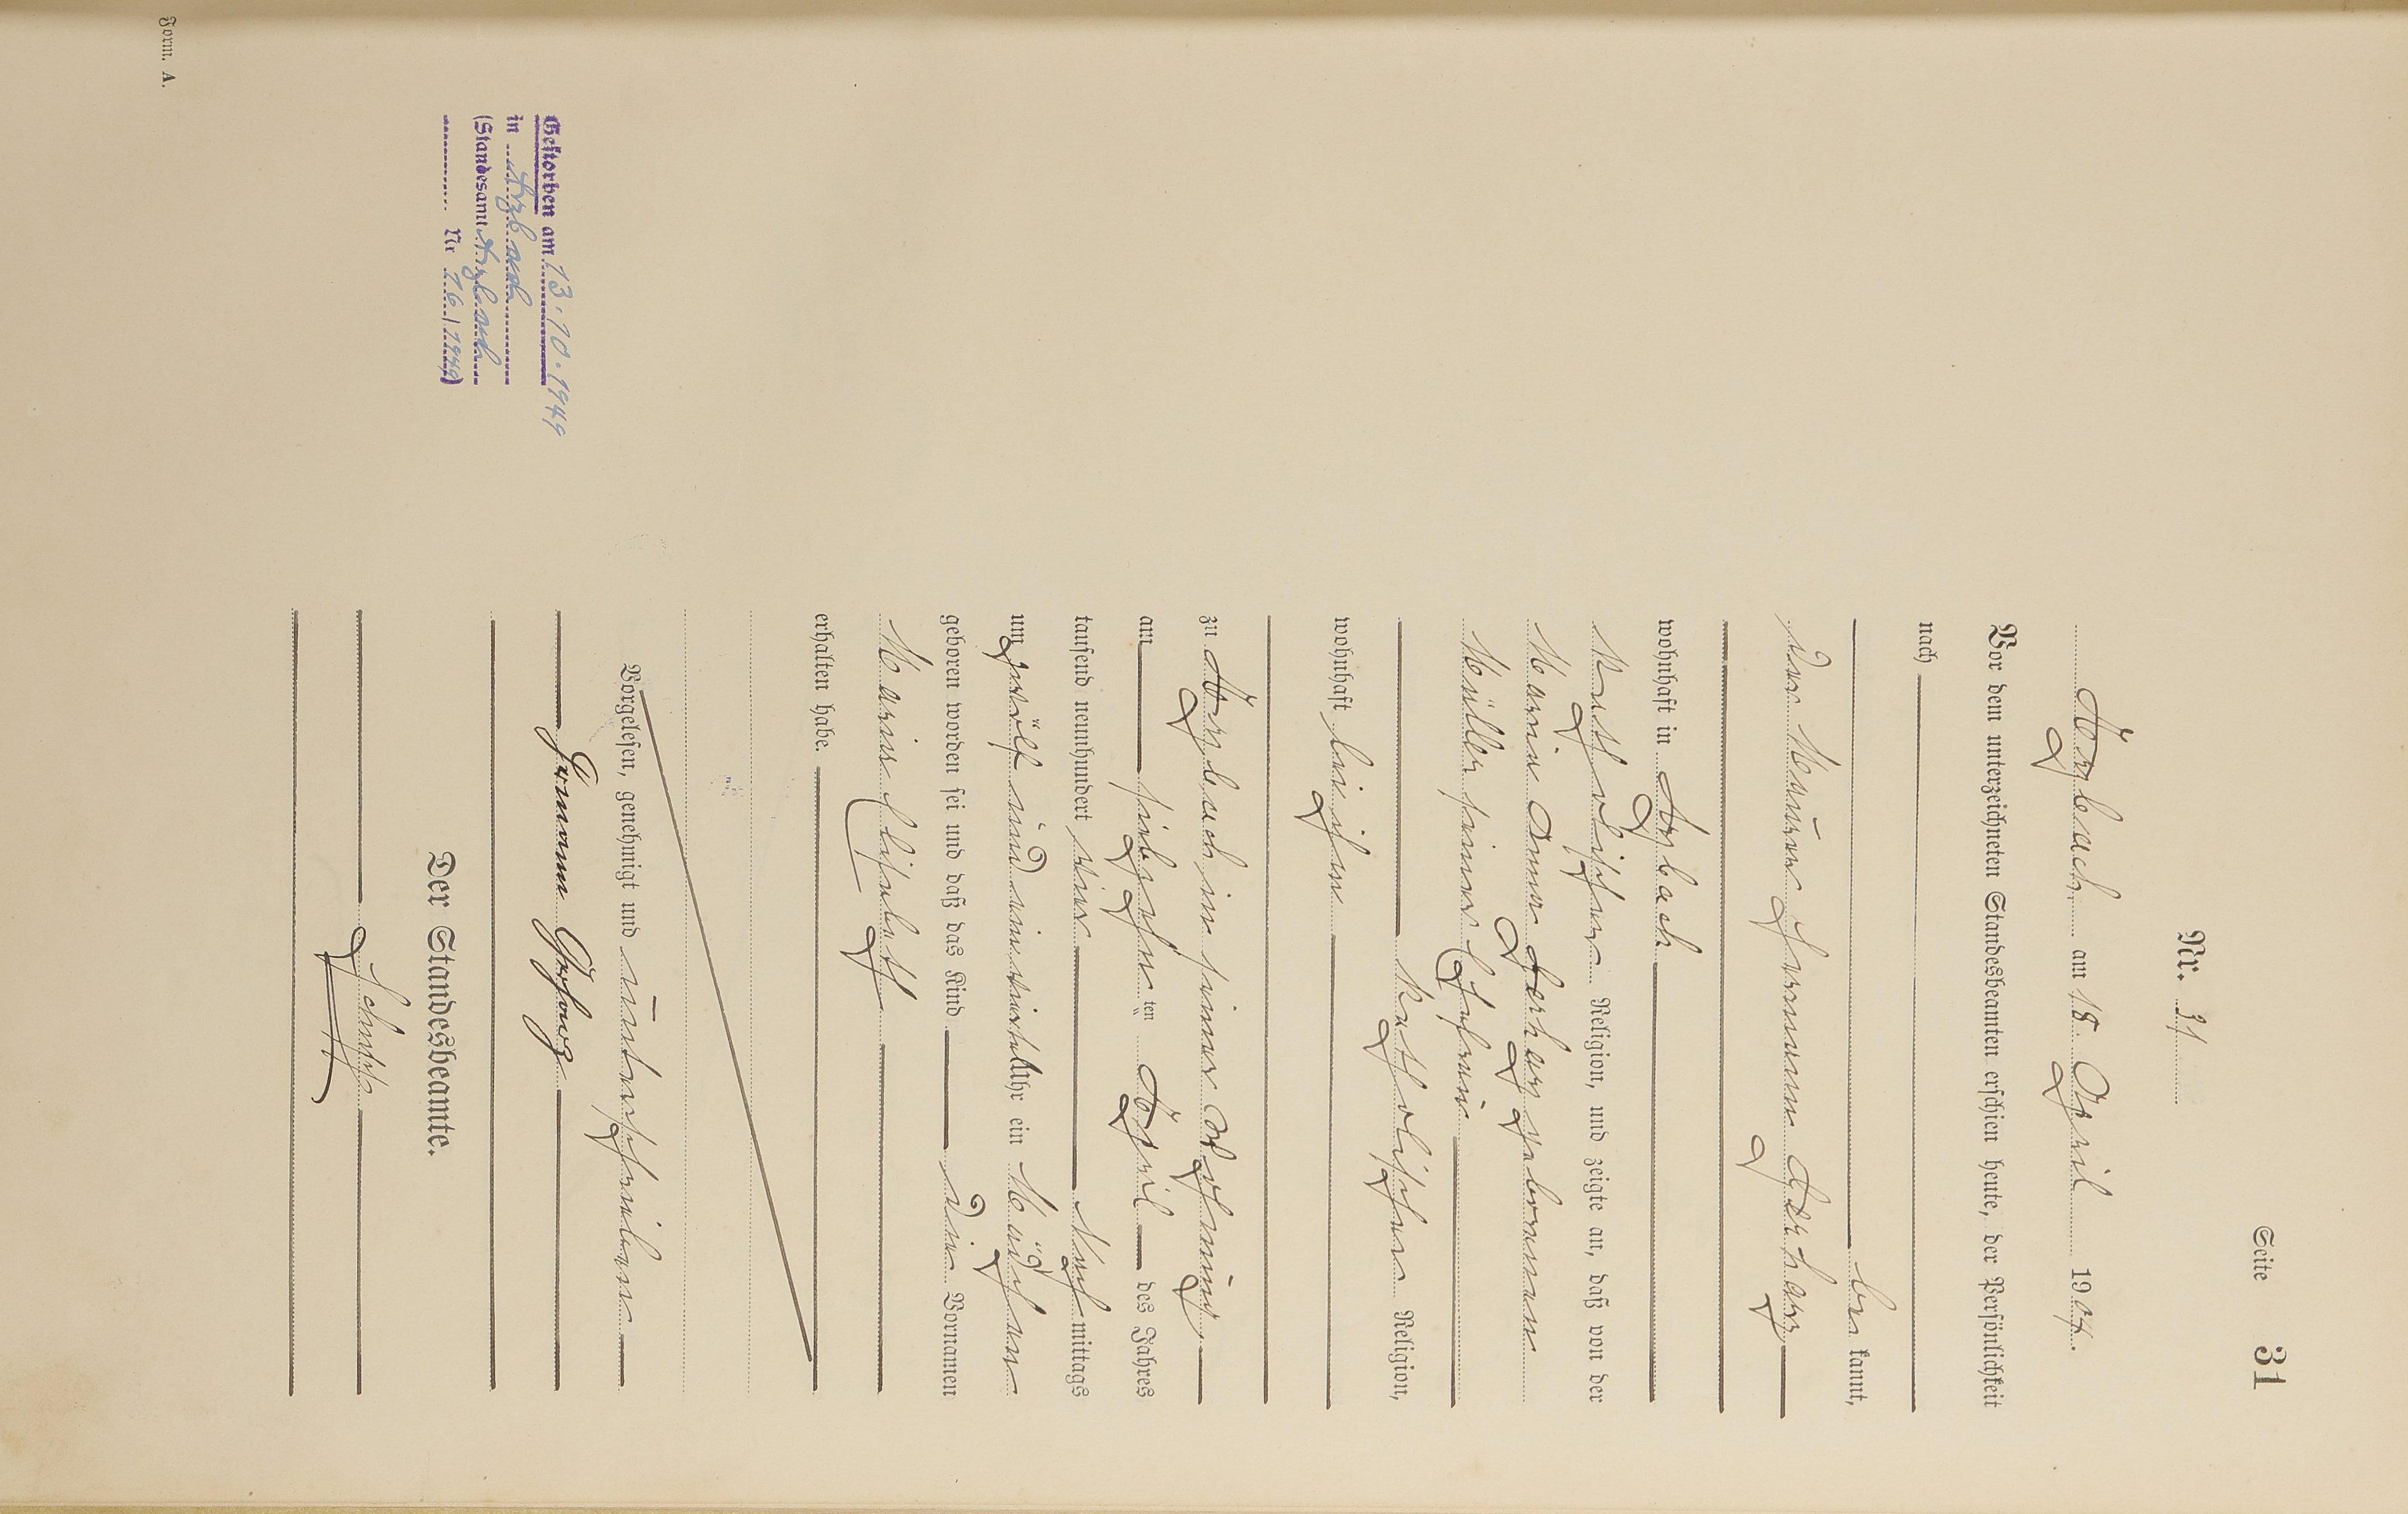 Seite 31
Nr. 31
Arzbach am 18. April 1904.
Vor dem unterzeichneten Standesbeamten erschien heute, der Persönlichkeit
nach
be kannt,
der Maurer Hermann Gerharz
wohnhaft in Arzbach
katholischer Religion, und zeigte an, daß von der
Maria Anna Gerharz geborenen
Müller seiner Ehefrau
katholischer Religion,
wohnhaft bei ihm
zu Arzbach in seiner Wohnung,
am siebzehn ten April des Jahres
tausend neunhundert vier Nach mittags
um zwölf und ein viertel Uhr ein Mädchen
geboren worden sei und daß das Kind die Vornamen
Maria Elisabeth
erhalten habe.
Vorgelesen, genehmigt und unterschrieben
Hermann Gerharz
Der Standesbeamte.
Gestorben am 13.10.1949
in Arzbach
(Standesamt Arzbach
Nr 16/1949)
Form. A.